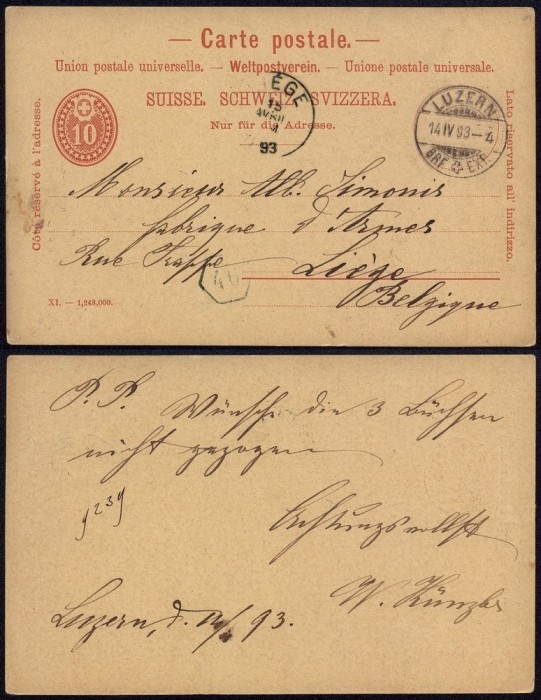 — Carte postale. —
Union postale universelle. — Weltpostverein. — Unione postale universale.
SUISSE. SCHWEIZ. SVIZZERA.
Nur für die Adresse.
Côté réservé à l'adresse.
Lato riservato all' indirizzo.
10
LIÈGE
15
AVRIL
93
LUZERN
14 IV 93 – 4
BRF. EXP.
Monsieur Alb. Simonis
fabrique d'Armes
Rue Trappé
Liége
Belgique
XI. — 1,248,000.
P. P. Wünsche die 3 Büchsen
nicht gezogen
9239
Achtungsvollst
W. Künzler
Luzern, d. 14/4 93.